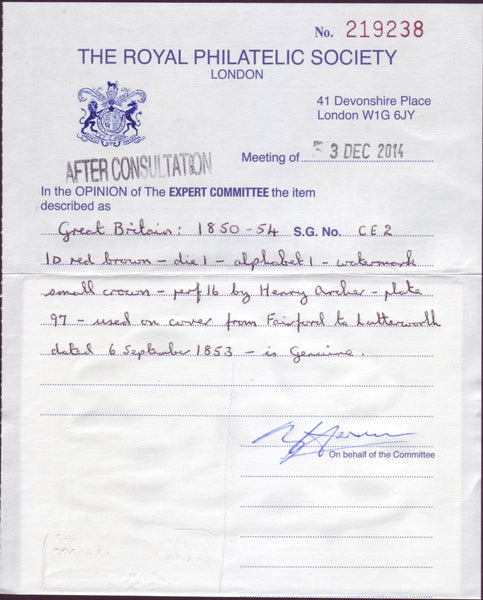 No. 219238
THE ROYAL PHILATELIC SOCIETY
LONDON
41 Devonshire Place
London W1G 6JY
AFTER CONSULTATION
Meeting of 3 DEC 2014
In the OPINION of The EXPERT COMMITTEE the item
described as
Great Britain: 1850-54 S.G. No. CE2
1D red brown - die 1 - alphabet 1 - watermark
small crown - perf 16 by Henry Archer - plate
97 - used on cover from Fairford to Lutterworth
dated 6 September 1853 - is Genuine.
On behalf of the Committee